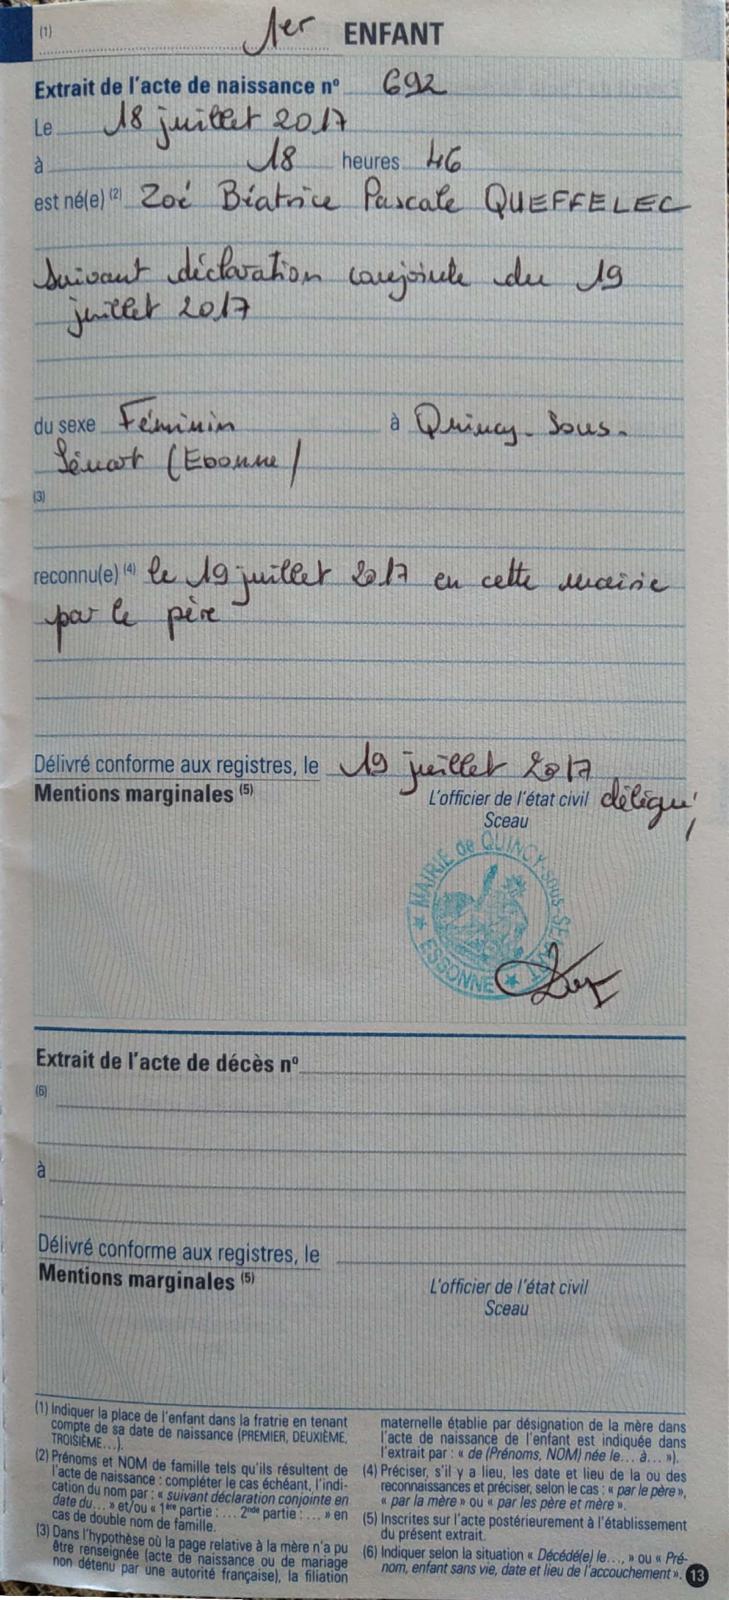 (1) 1er ENFANT
Extrait de l'acte de naissance nº 692
Le 18 juillet 2017
à 18 heures 46
est né(e) (2) Zoé Béatrice Pascale QUEFFELEC
Suivant déclaration conjointe du 19
juillet 2017
du sexe Féminin à Quincy-Sous-
Sénart (Essonne)
(3)
reconnu(e) (4) le 19 juillet 2017 en cette mairie
par le père
Délivré conforme aux registres, le 19 juillet 2017
Mentions marginales (5) L'officier de l'état civil délégué,
Sceau
MAIRIE de QUINCY-sous-SENART
ESSONNE
Extrait de l'acte de décès nº
(6)
à
Délivré conforme aux registres, le
Mentions marginales (5)
L'officier de l'état civil
Sceau
(1) Indiquer la place de l'enfant dans la fratrie en tenant
compte de sa date de naissance (PREMIER, DEUXIÈME,
TROISIÈME...).
(2) Prénoms et NOM de famille tels qu'ils résultent de
l'acte de naissance : compléter le cas échéant, l'indi-
cation du nom par : « suivant déclaration conjointe en
date du... » et/ou « 1ère partie : ... 2nde partie : ... » en
cas de double nom de famille.
(3) Dans l'hypothèse où la page relative à la mère n'a pu
être renseignée (acte de naissance ou de mariage
non détenu par une autorité française), la filiation
maternelle établie par désignation de la mère dans
l'acte de naissance de l'enfant est indiquée dans
l'extrait par : « de (Prénoms, NOM) née le... à... »).
(4) Préciser, s'il y a lieu, les date et lieu de la ou des
reconnaissances et préciser, selon le cas : « par le père »,
« par la mère » ou « par les père et mère ».
(5) Inscrites sur l'acte postérieurement à l'établissement
du présent extrait.
(6) Indiquer selon la situation « Décédé(e) le..., » ou « Pré-
nom, enfant sans vie, date et lieu de l'accouchement ».
13